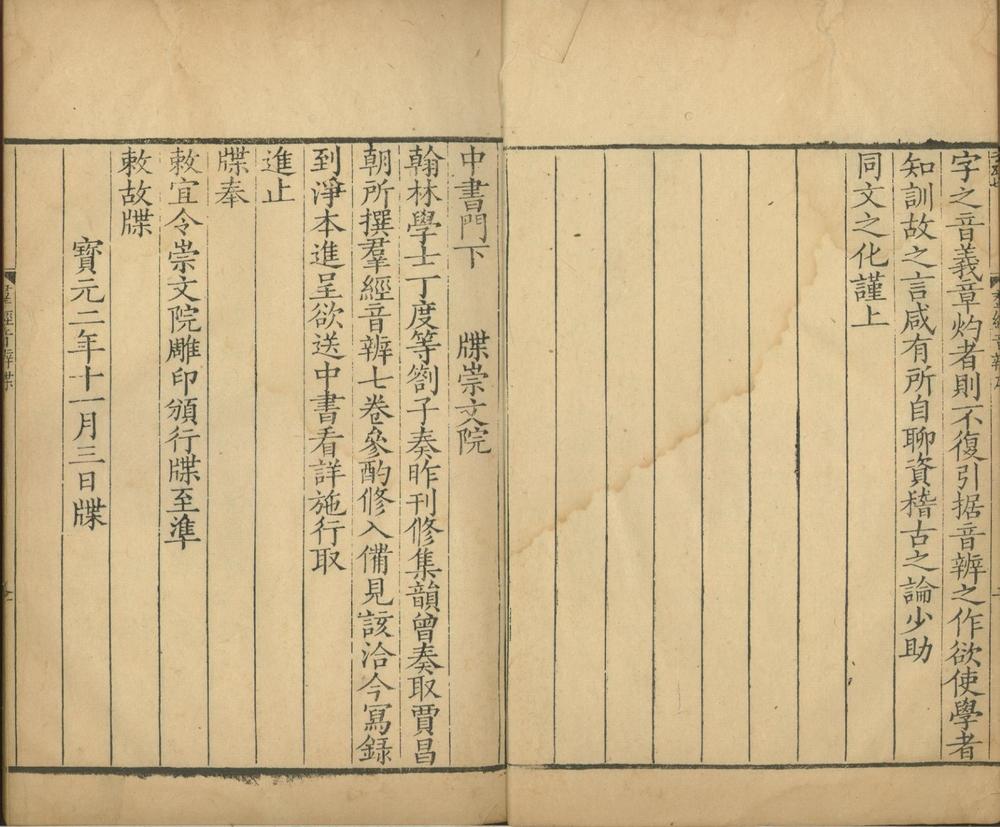 字之音義章灼者則不復引据音辨之作欲使學者
知訓故之言咸有所自聊資稽古之論少助
同文之化謹上
中書門下　牒崇文院
翰林學士丁度等劄子奏昨刊修集韻曾奏取賈昌
朝所撰羣經音辨七卷參酌修入備見該洽今寫錄
到淨本進呈欲送中書看詳施行取
進止
牒奉
敕宜令崇文院雕印頒行牒至準
敕故牒
寶元二年十一月三日牒
羣經音辨牒